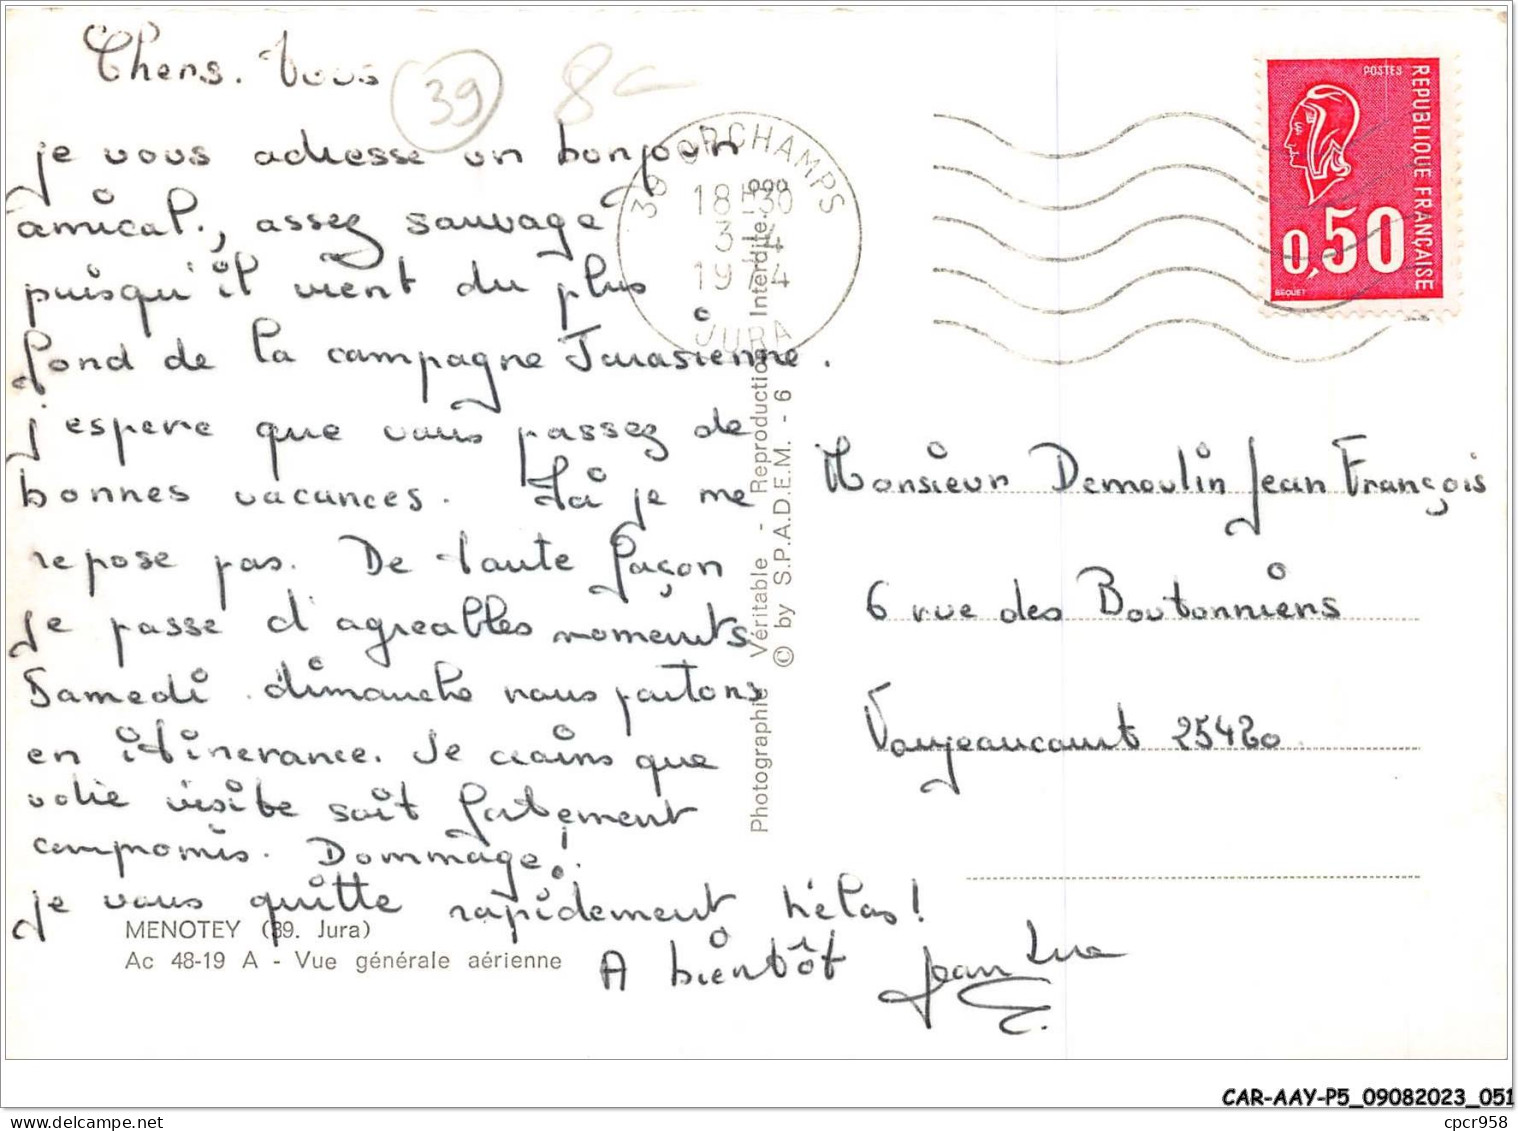 Chers. Vous
39
8
je vous adresse un bonjour
amical., assez sauvage
puisqu'il vient du plus
fond de la campagne Jurasienne.
j'espere que vous passez de
bonnes vacances. Ici je me
repose pas. De toute façon
je passe d'agreables moments
Samedi. dimanche nous partons
en itinerance. Je crains que
votre visite soit fortement
compromis. Dommage!.
je vous quitte rapidement hélas!
A bientôt Jean Luc
MENOTEY (39. Jura)
Ac 48-19 A - Vue générale aérienne
39 ORCHAMPS
18H30
3-4
1974
JURA
Photographie Véritable - Reproduction Interdite.
© by S.P.A.D.E.M. - 6
POSTES
REPUBLIQUE FRANÇAISE
0,50
BEQUET
Monsieur Demoulin Jean François
6 rue des Boutonniers
Voujeaucourt 25420
CAR-AAY-P5_09082023_051
www.delcampe.net
cpcr958